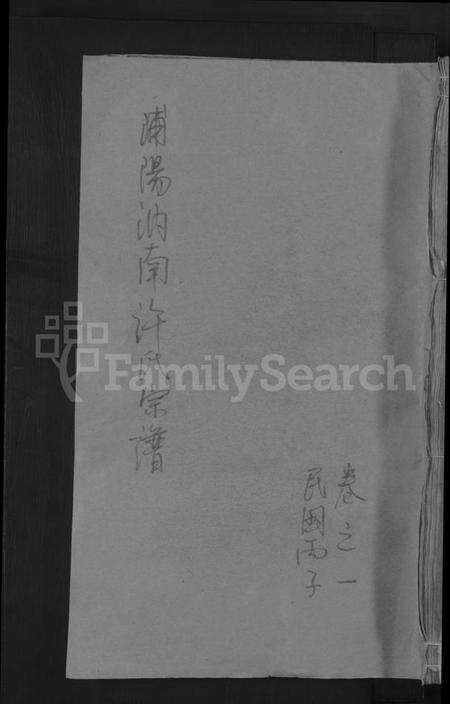 卷之一
民國丙子
浦陽汭南許氏宗譜
FamilySearch